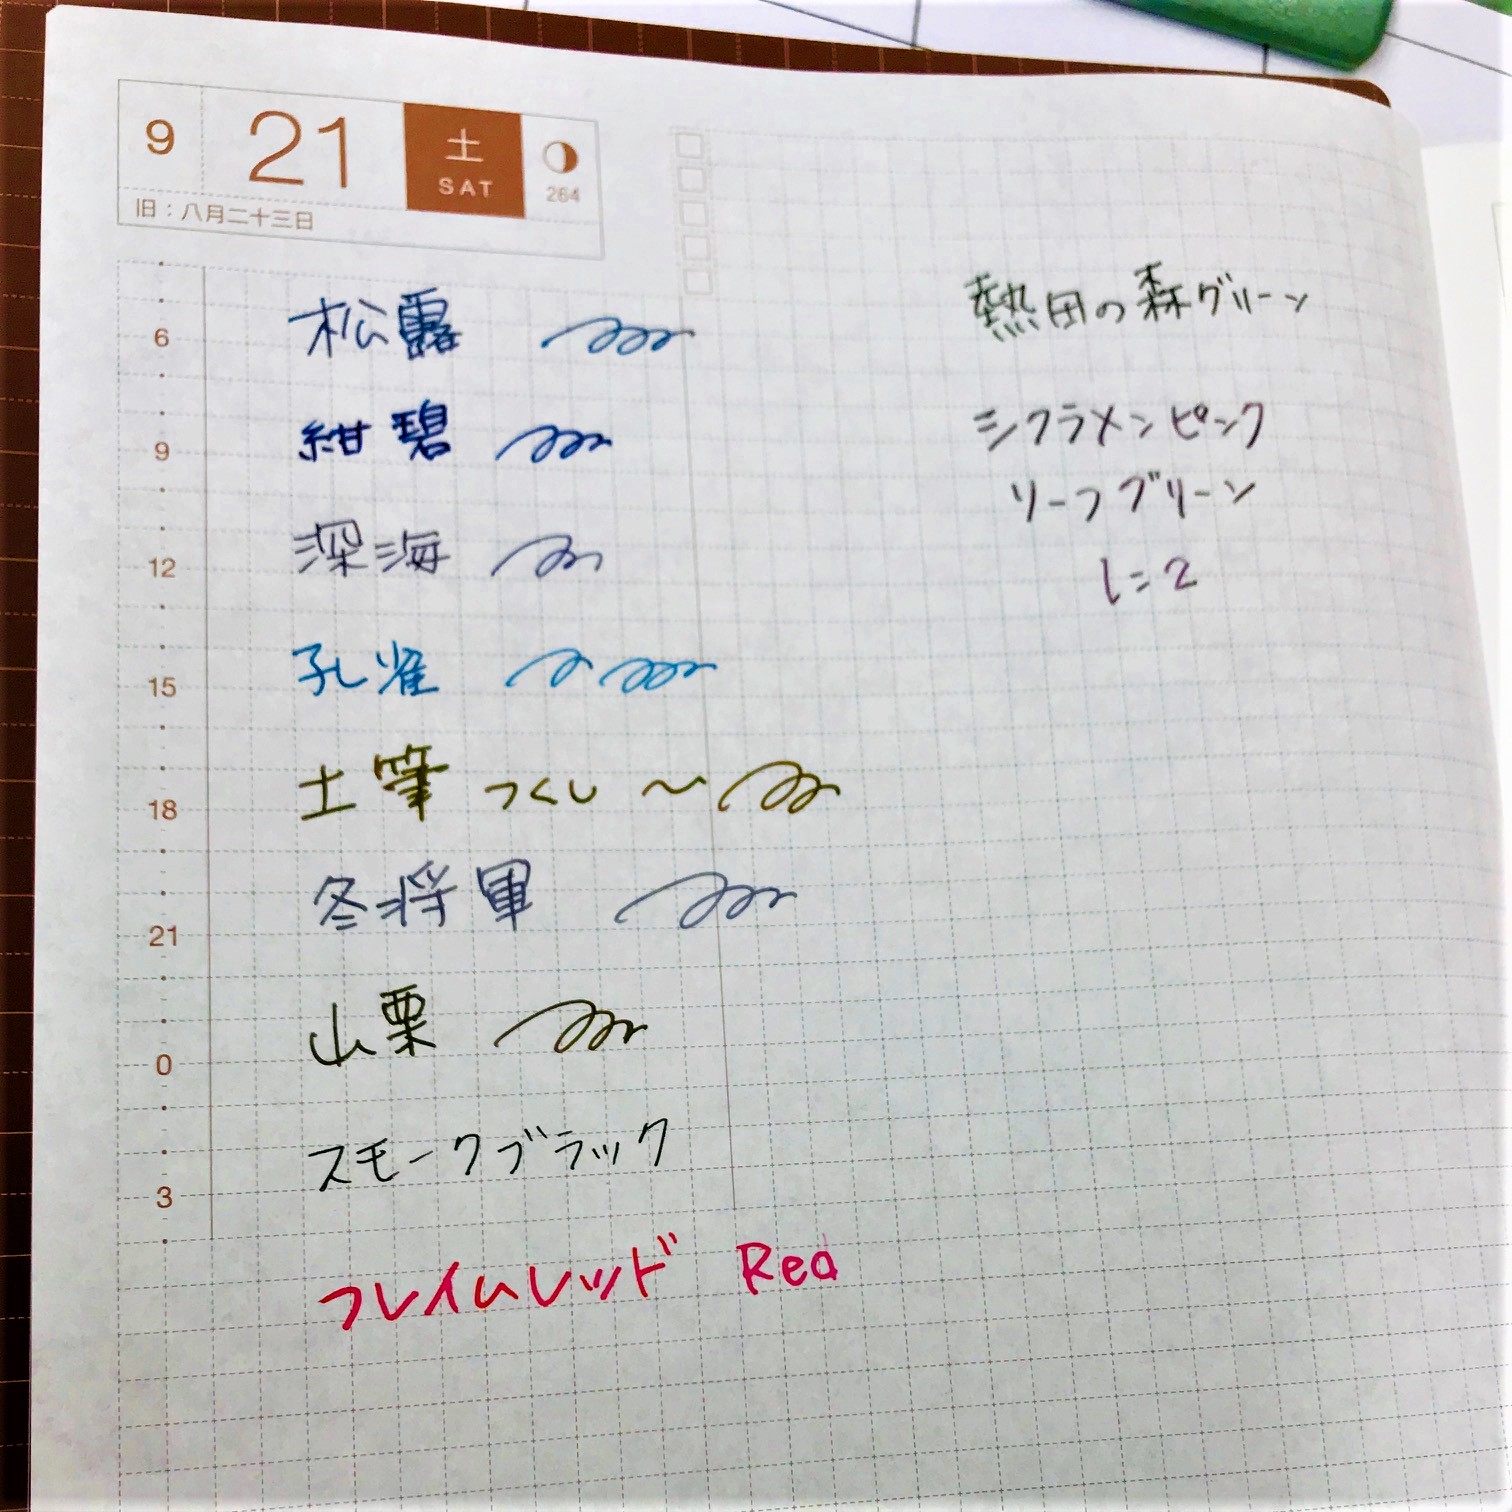 9 21 土 SAT 264
旧：八月二十三日
6
9
12
15
18
21
0
3
松露
紺碧
深海
孔雀
土筆 つくし 〜
冬将軍
山栗
スモークブラック
フレイムレッド Red
熱田の森グリーン
シクラメンピンク
リーフグリーン
1:2